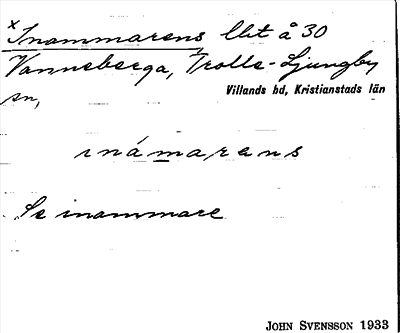 x Inammarens lht å 30
Vanneberga, Trolle-Ljungby
sn,
Villands hd, Kristianstads län
ınámarens
Se inammare
JOHN SVENSSON 1933